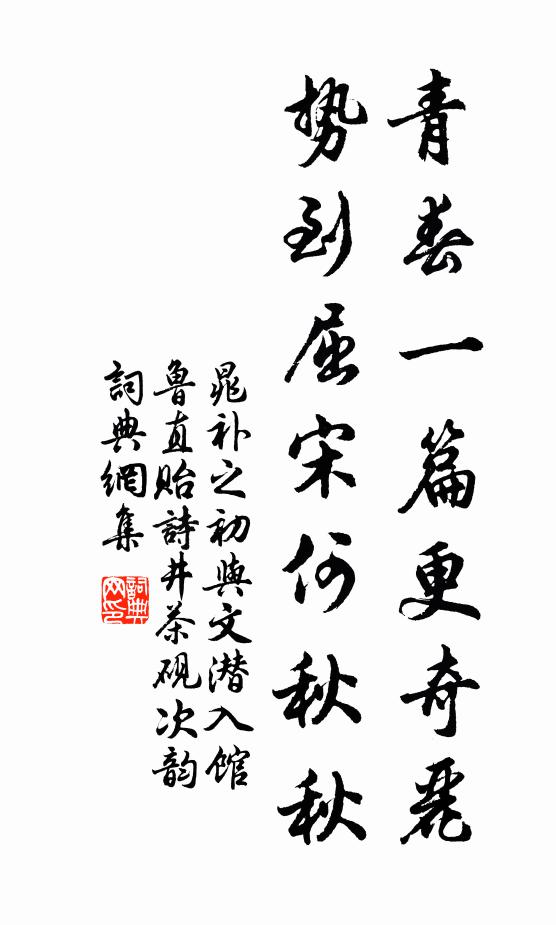 青春一篇更奇麗
势到屈宋何秋秋
晁补之初與文潜入館
魯直貽詩并茶硯次韵
詞典網集
詞典網印